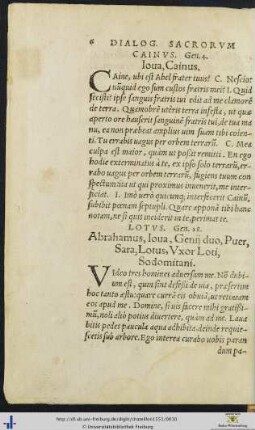 6 DIALOG. SACRORVM
CAINVS. Gen. 4.
Ioua, Cainus.
CAine, ubi est Abel frater tuus? C. Nescio:
nũquid ego sum custos fratris mei? I. Quid
fecisti? ipse sanguis fratris tui ad me clamore
de terra. Quamobrẽ interis terra infesta, ut quæ
aperto ore hauserit sanguinẽ fratris tui, de tua ma
nu, ea non præbeat amplius uim suam tibi colen-
ti. Tu errabis uagus per orbem terrarũ. C. Mea
culpa est maior, quàm ut possit remitti. En ego
hodie exterminatus à te, ex ipso solo terrarũ, er-
rabo uagus per orbem terrarũ, fugiens tuum con
spectum: ita ut qui proximus inuenerit, me inter-
ficiat. I. Imò uerò quicunq; interfecerit Cainũ,
subibit pœnam septupli. Quare apponã tibi hanc
notam, ne si quis inciderit in te, perimat te.
LOTVS. Gen. 18.
Abrahamus, Ioua, Genij duo, Puer,
Sara, Lotus, Vxor Loti,
Sodomitani.
VIdeo tres homines aduersum me. Nõ dubi-
um est, quin sint defessi de uia, præsertim
hoc tanto æstu: quare currã eis obuiã, ut retineam
eos apud me. Domine, si uis facere mihi gratissi-
mũ, noli aliò potius diuertere, quàm ad me. Laua
bitis pedes paucula aqua adhibita, deinde requie-
scetis sub arbore. Ego interea curabo uobis paran
dum pa-
http://dl.ub.uni-freiburg.de/diglit/
© Universitätsbibliothek Freiburg